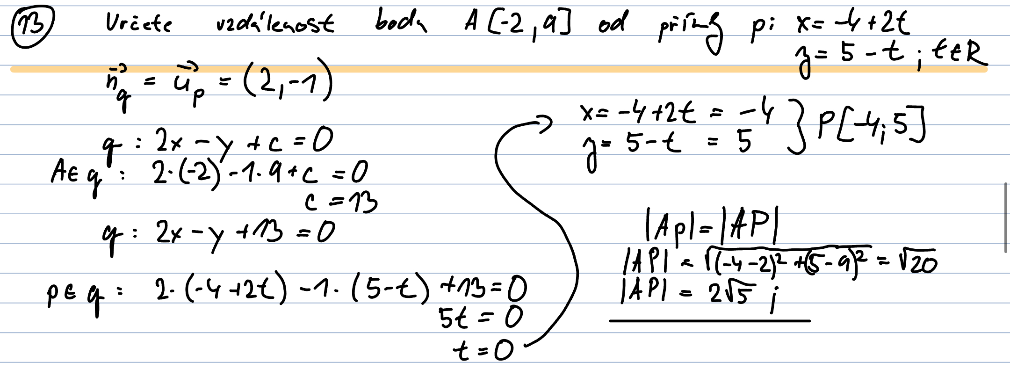 13 Určete vzdálenost bodu A[-2,9] od přímky p: x = -4+2t
y = 5-t ; t∈R
n⃗_q = u⃗_p = (2,-1)
q: 2x - y + c = 0
A∈q: 2·(-2) -1·9+c = 0
c = 13
q: 2x - y + 13 = 0
p∈q: 2·(-4+2t) -1·(5-t) +13=0
5t = 0
t = 0
x = -4+2t = -4 } P[-4;5]
y = 5-t = 5
|Ap| = |AP|
|AP| = √((-4-2)² + (5-9)²) = √20
|AP| = 2√5 j